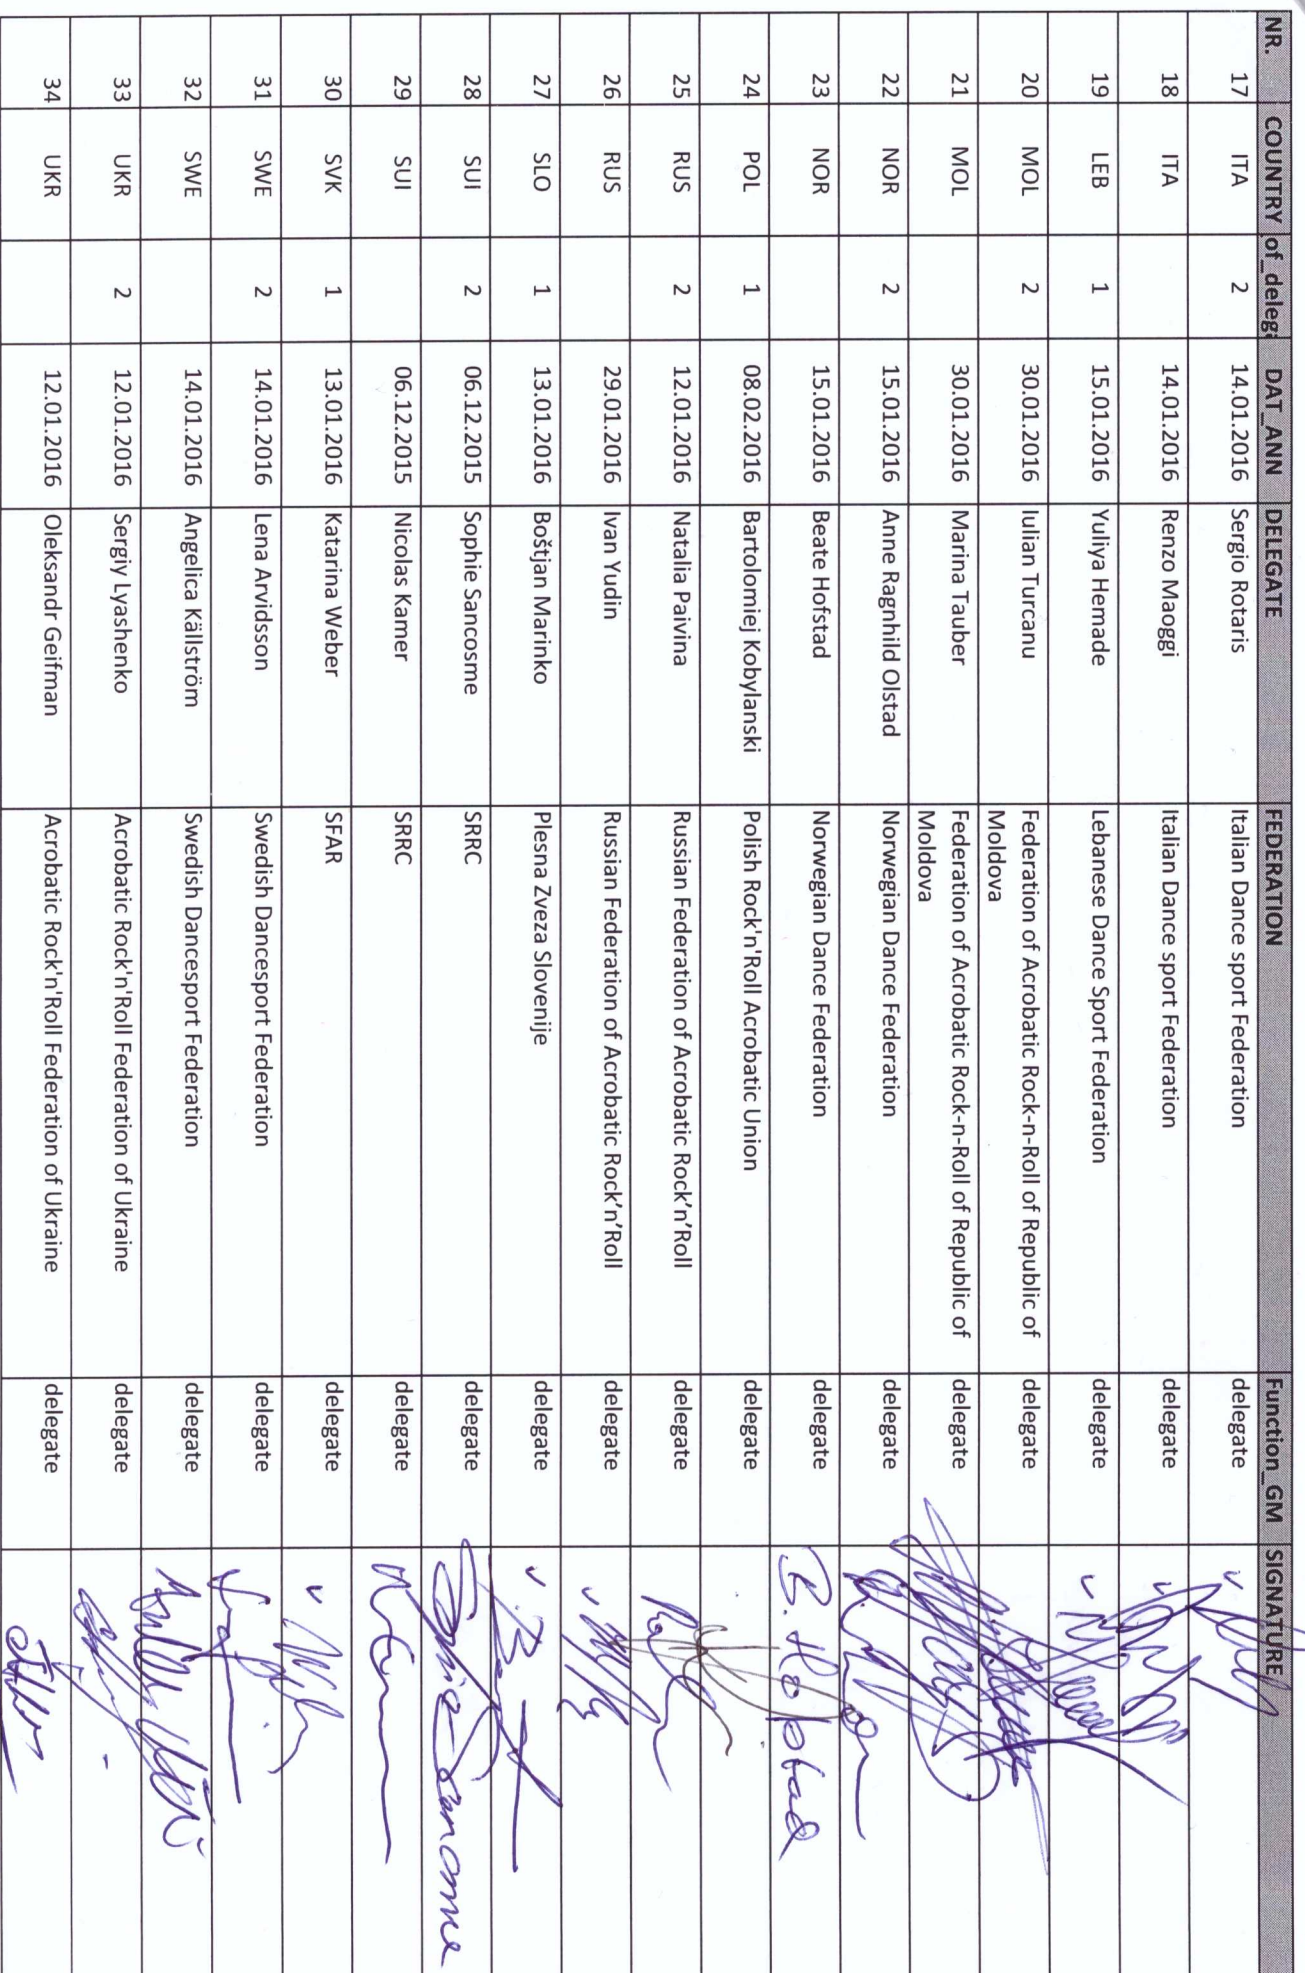 NR. COUNTRY of_delega DAT_ANN DELEGATE FEDERATION Function_GM SIGNATURE
17 ITA 2 14.01.2016 Sergio Rotaris Italian Dance sport Federation delegate
18 ITA 14.01.2016 Renzo Maoggi Italian Dance sport Federation delegate
19 LEB 1 15.01.2016 Yuliya Hemade Lebanese Dance Sport Federation delegate
20 MOL 2 30.01.2016 Iulian Turcanu Federation of Acrobatic Rock-n-Roll of Republic of delegate
Moldova
21 MOL 30.01.2016 Marina Tauber Federation of Acrobatic Rock-n-Roll of Republic of delegate
Moldova
22 NOR 2 15.01.2016 Anne Ragnhild Olstad Norwegian Dance Federation delegate
23 NOR 15.01.2016 Beate Hofstad Norwegian Dance Federation delegate B. Hofstad
24 POL 1 08.02.2016 Bartolomiej Kobylanski Polish Rock'n'Roll Acrobatic Union delegate
25 RUS 2 12.01.2016 Natalia Paivina Russian Federation of Acrobatic Rock'n'Roll delegate
26 RUS 29.01.2016 Ivan Yudin Russian Federation of Acrobatic Rock'n'Roll delegate
27 SLO 1 13.01.2016 Boštjan Marinko Plesna Zveza Slovenije delegate
28 SUI 2 06.12.2015 Sophie Sancosme SRRC delegate Sophie Sancosme
29 SUI 06.12.2015 Nicolas Kamer SRRC delegate
30 SVK 1 13.01.2016 Katarina Weber SFAR delegate
31 SWE 2 14.01.2016 Lena Arvidsson Swedish Dancesport Federation delegate
32 SWE 14.01.2016 Angelica Källström Swedish Dancesport Federation delegate
33 UKR 2 12.01.2016 Sergiy Lyashenko Acrobatic Rock'n'Roll Federation of Ukraine delegate
34 UKR 12.01.2016 Oleksandr Geifman Acrobatic Rock'n'Roll Federation of Ukraine delegate